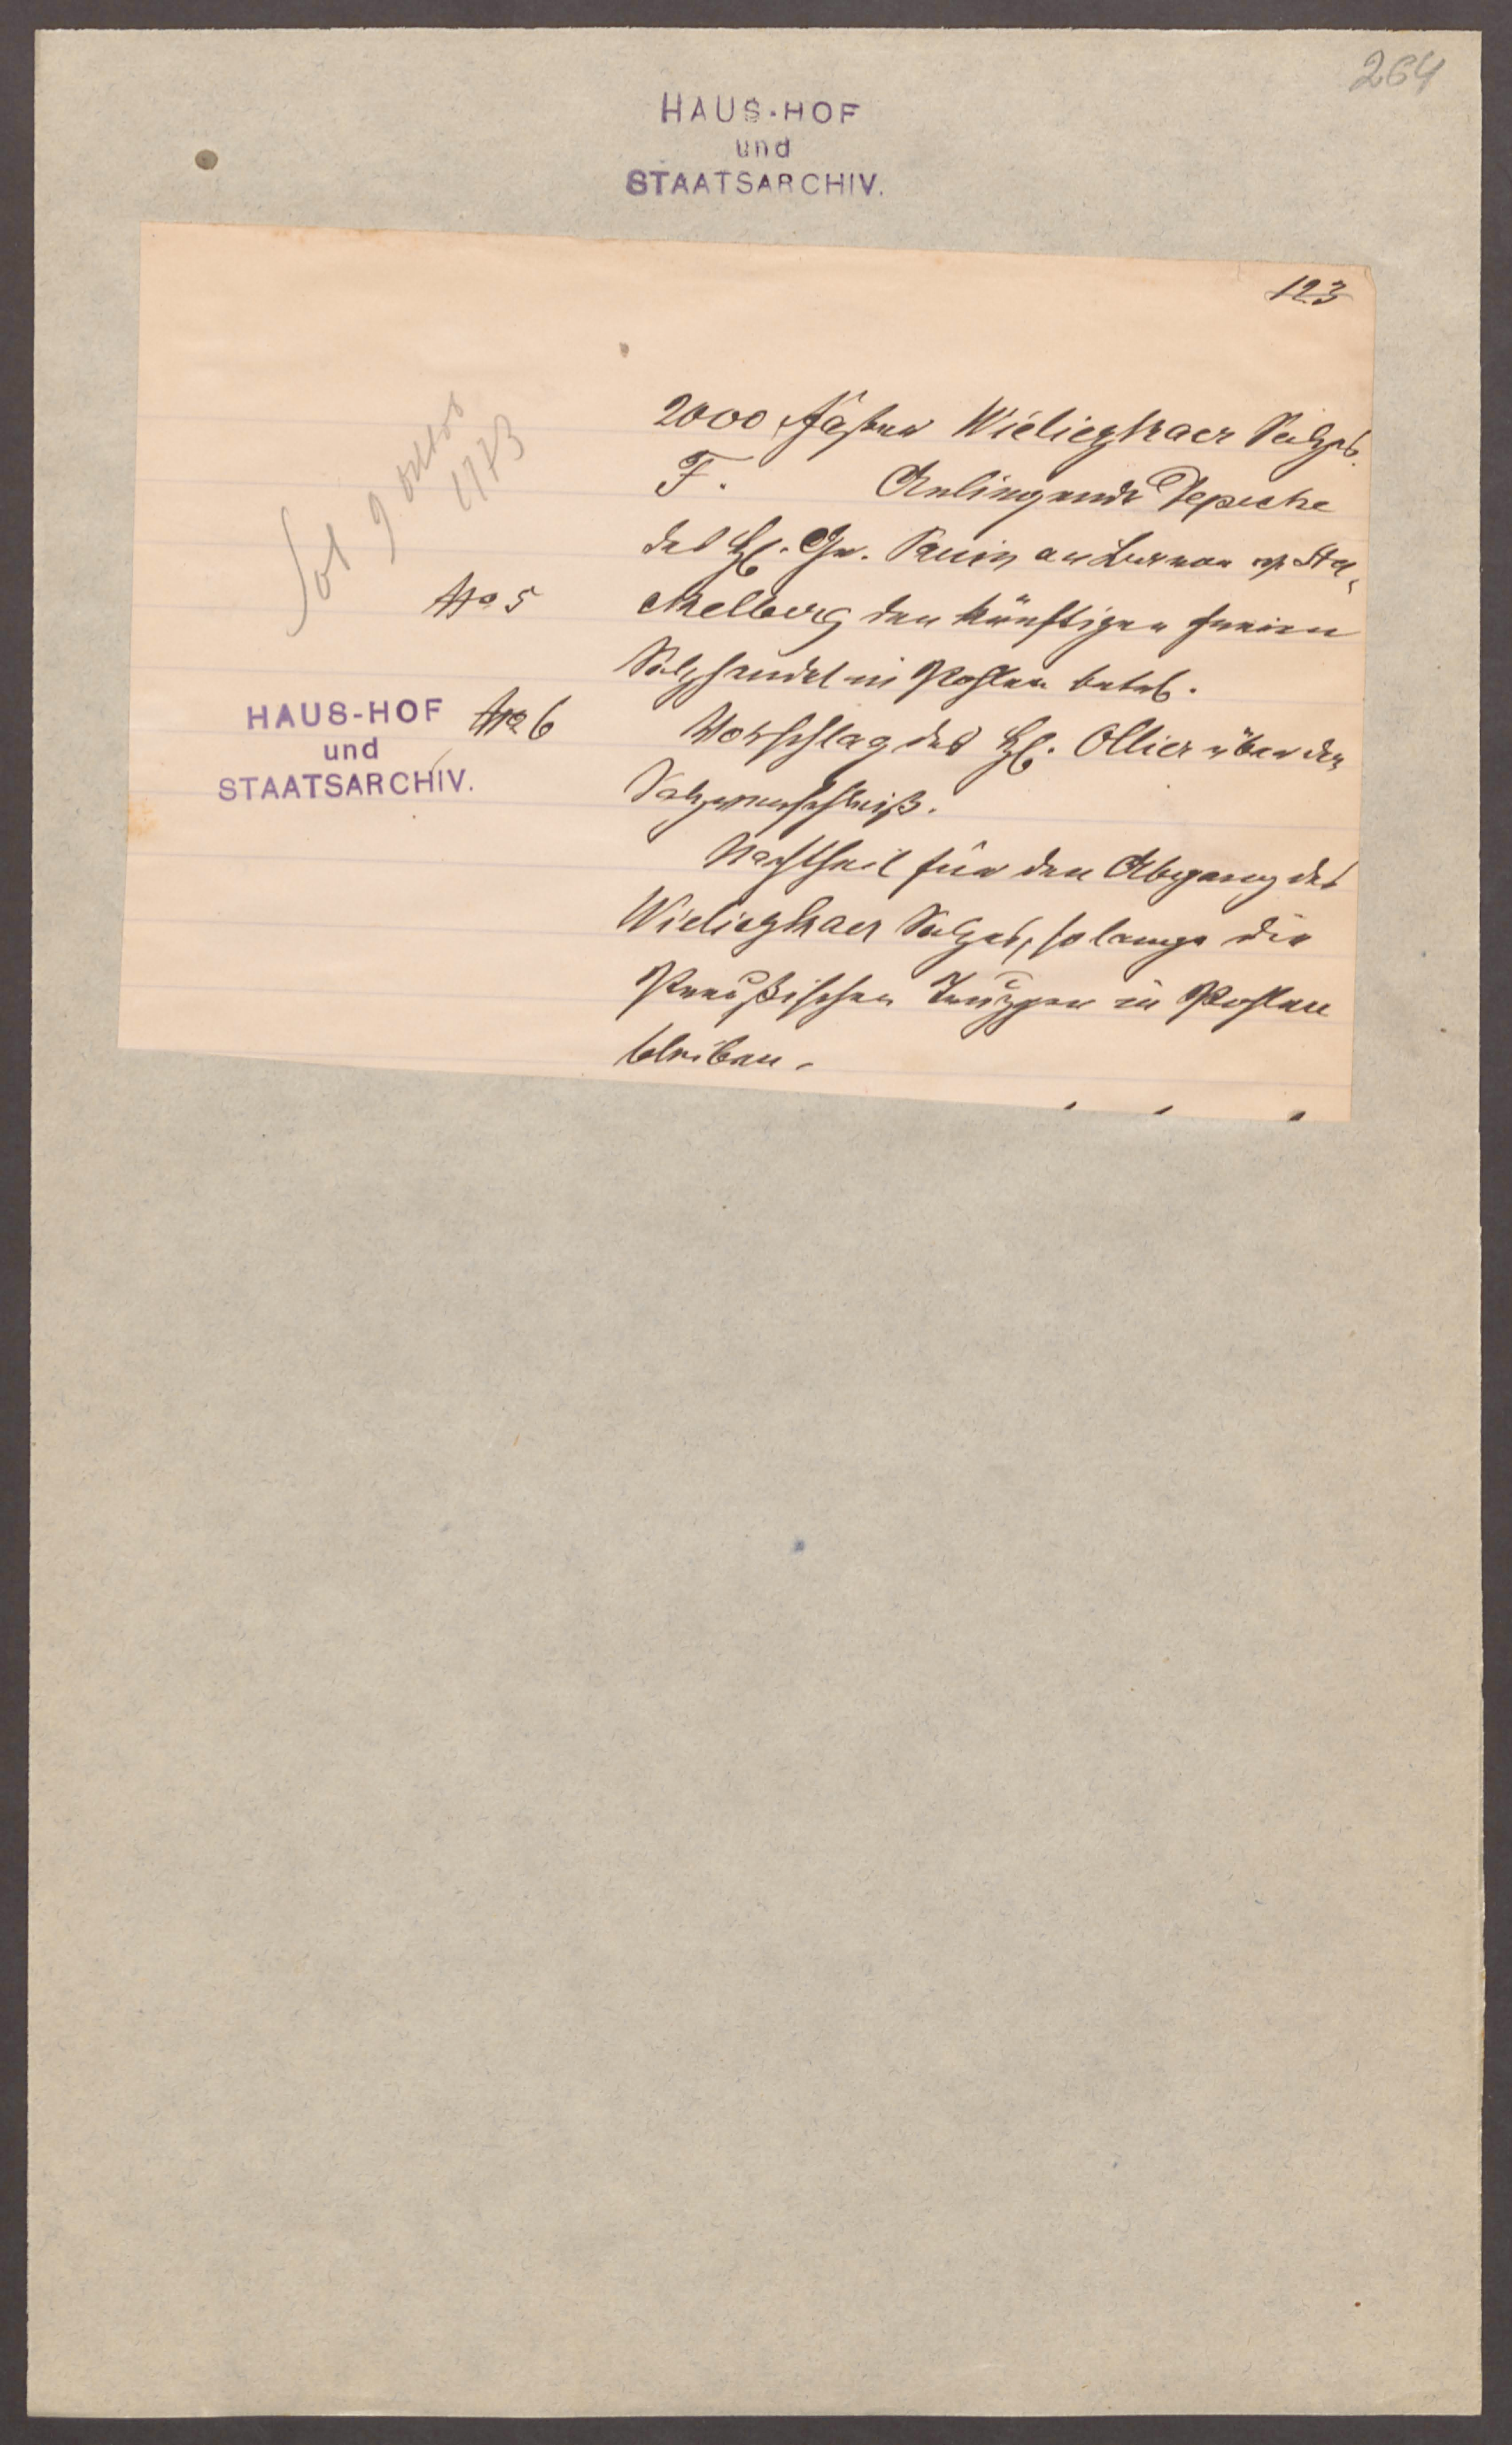 264
HAUS-HOF
und
STAATSARCHIV.
123
2000 Fäßer Wieliczkaer Salzes.
F. Anliegende Depesche
des H. Gr. Panin an Baron v. Sta-
No 5 ckelberg den künftigen freien
Salzhandel in Pohlen betrf.
HAUS-HOF
und
STAATSARCHIV.
No 6 Vorschlag des H. Ollier über den
Salzverschleiß.
Nachtheil für den Abgang des
Wieliczkaer Salzes, so lange die
Preußischen Truppen in Pohlen
bleiben.
9
1773